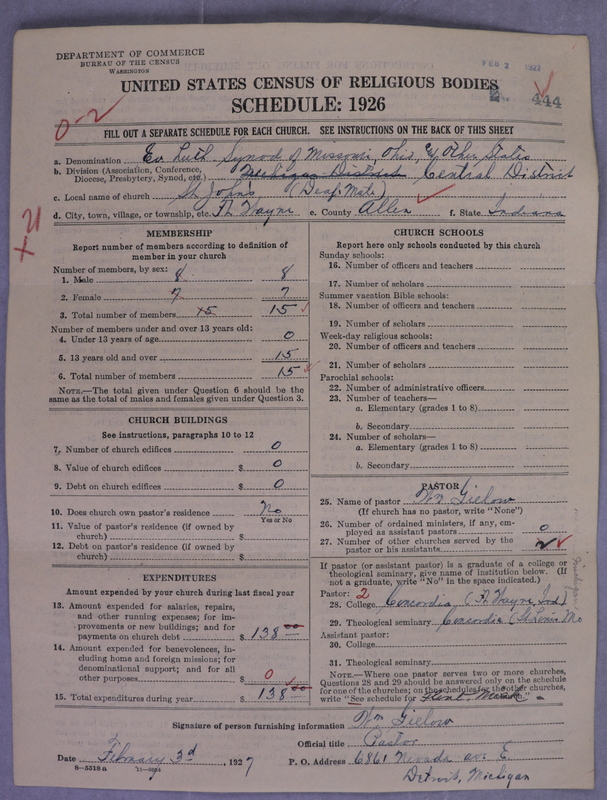 DEPARTMENT OF COMMERCE
BUREAU OF THE CENSUS
WASHINGTON
FEB 2 1927
444
UNITED STATES CENSUS OF RELIGIOUS BODIES
SCHEDULE: 1926
0-2
FILL OUT A SEPARATE SCHEDULE FOR EACH CHURCH. SEE INSTRUCTIONS ON THE BACK OF THIS SHEET
a. Denomination Ev. Luth. Synod of Missouri, Ohio, & Other States
b. Division (Association, Conference, Diocese, Presbytery, Synod, etc.) Michigan District Central District
c. Local name of church St. John's (Deaf-Mute)
d. City, town, village, or township, etc. Ft. Wayne e. County Allen f. State Indiana
MEMBERSHIP
Report number of members according to definition of member in your church
Number of members, by sex:
1. Male 8 8
2. Female 7 7
3. Total number of members 15 15
Number of members under and over 13 years old:
4. Under 13 years of age 0
5. 13 years old and over 15
6. Total number of members 15
NOTE.—The total given under Question 6 should be the same as the total of males and females given under Question 3.
CHURCH BUILDINGS
See instructions, paragraphs 10 to 12
7. Number of church edifices 0
8. Value of church edifices $ 0
9. Debt on church edifices $ 0
10. Does church own pastor's residence No
Yes or No
11. Value of pastor's residence (if owned by church) $
12. Debt on pastor's residence (if owned by church) $
EXPENDITURES
Amount expended by your church during last fiscal year
13. Amount expended for salaries, repairs, and other running expenses; for improvements or new buildings; and for payments on church debt $ 138 00
14. Amount expended for benevolences, including home and foreign missions; for denominational support; and for all other purposes $ 0
15. Total expenditures during year $ 138 00
CHURCH SCHOOLS
Report here only schools conducted by this church
Sunday schools:
16. Number of officers and teachers
17. Number of scholars
Summer vacation Bible schools:
18. Number of officers and teachers
19. Number of scholars
Week-day religious schools:
20. Number of officers and teachers
21. Number of scholars
Parochial schools:
22. Number of administrative officers
23. Number of teachers—
a. Elementary (grades 1 to 8)
b. Secondary
24. Number of scholars—
a. Elementary (grades 1 to 8)
b. Secondary
PASTOR
25. Name of pastor Wm Gielow
(If church has no pastor, write "None")
26. Number of ordained ministers, if any, employed as assistant pastors 0
27. Number of other churches served by the pastor or his assistants
If pastor (or assistant pastor) is a graduate of a college or theological seminary, give name of institution below. (If not a graduate, write "No" in the space indicated.)
Pastor: 2
28. College Concordia (Ft. Wayne, Ind)
29. Theological seminary Concordia (St. Louis Mo
Assistant pastor:
30. College
31. Theological seminary
NOTE.—Where one pastor serves two or more churches, Questions 28 and 29 should be answered only on the schedule for one of the churches; on the schedules for the other churches, write "See schedule for Flint, Mich."
Signature of person furnishing information Wm Gielow
Official title Pastor
Date February 3d, 1927 P. O. Address 6861 Nevada av. E.
8—5318a 11—9094 Detroit, Michigan